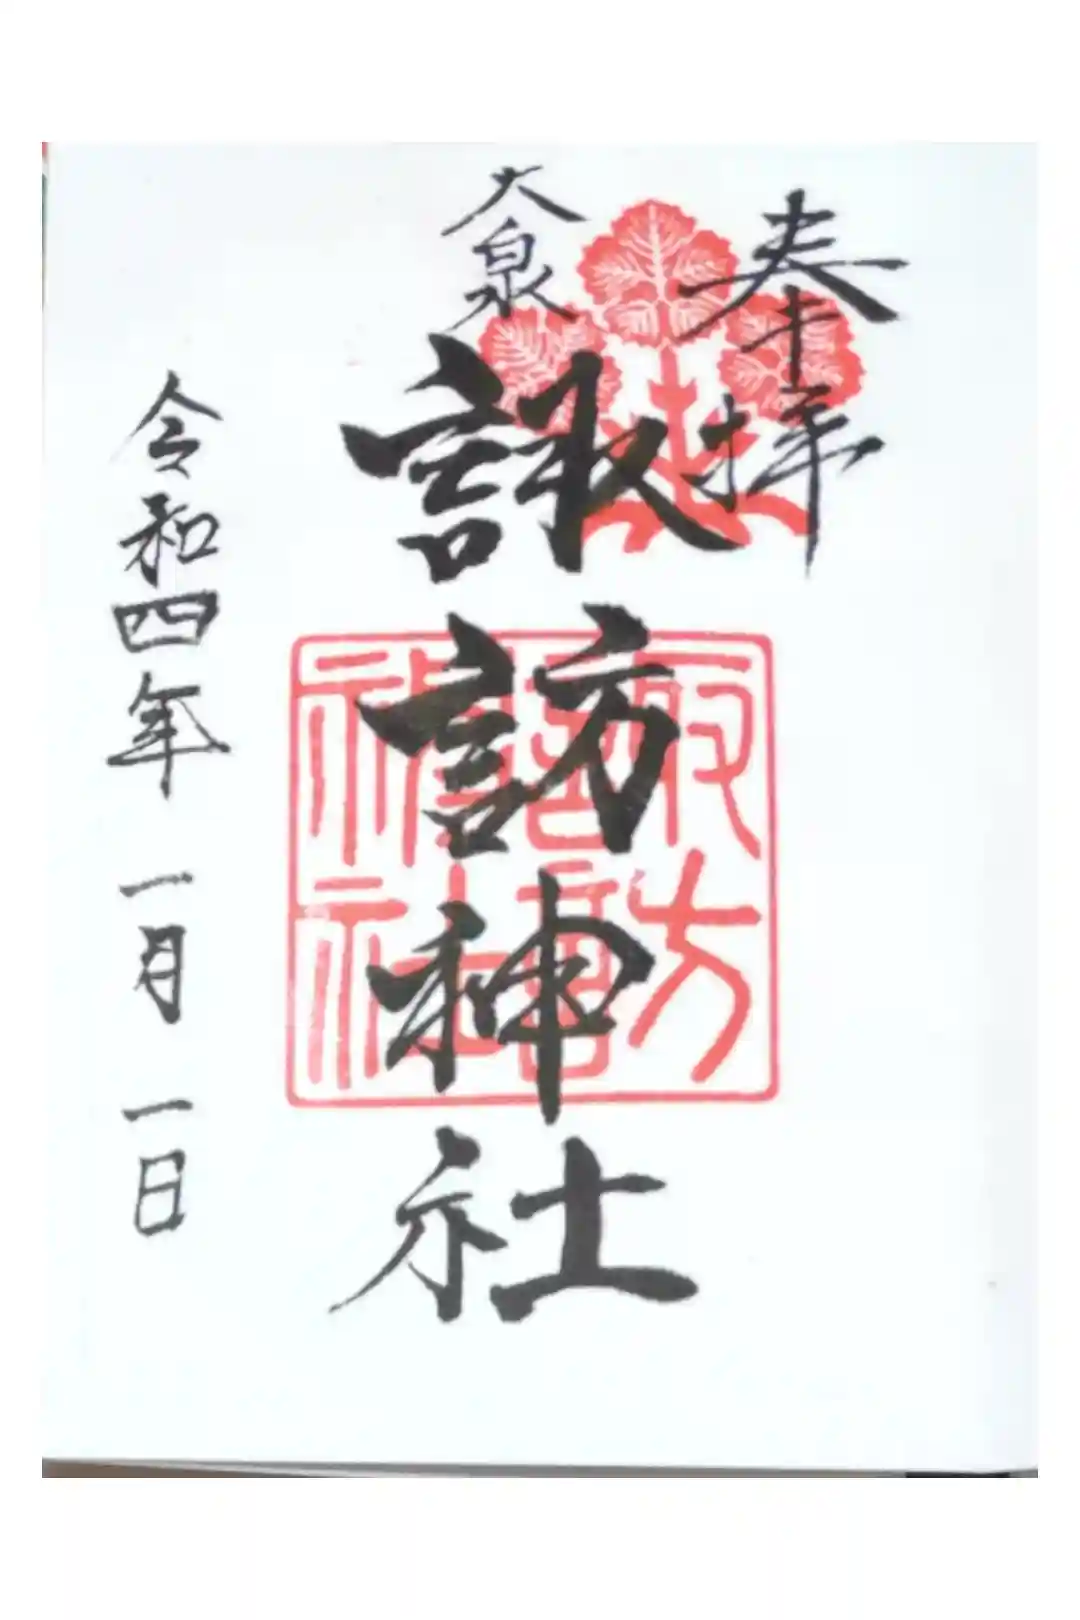 奉拝
大泉
諏訪神社
令和四年一月一日